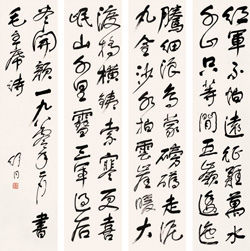 紅軍不怕遠征難萬水
千山只等閒五嶺逶迤
騰細浪烏蒙磅礴走泥
丸金沙水拍雲崖暖大
渡橋橫鐵索寒更喜
岷山千里雪三軍過后
尽開顏一九八 年 書
毛主席詩